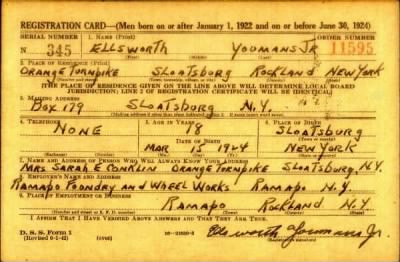 REGISTRATION CARD—(Men born on or after January 1, 1922 and on or before June 30, 1924)
SERIAL NUMBER 1. NAME (Print) ORDER NUMBER
N 345 ELLSWORTH YOUMANS JR 11595
(First) (Middle) (Last)
2. PLACE OF RESIDENCE (Print)
ORANGE TURNPIKE SLOATSBURG ROCKLAND NEW YORK
(Number and street) (Town, township, village, or city) (County) (State)
[THE PLACE OF RESIDENCE GIVEN ON THE LINE ABOVE WILL DETERMINE LOCAL BOARD
JURISDICTION; LINE 2 OF REGISTRATION CERTIFICATE WILL BE IDENTICAL]
3. MAILING ADDRESS
BOX 179 SLOATSBURG N.Y.
[Mailing address if other than place indicated on line 2. If same insert word same]
4. TELEPHONE 5. AGE IN YEARS 6. PLACE OF BIRTH
NONE 18 SLOATSBURG
DATE OF BIRTH (Town or county)
MAR 15 1924 NEW YORK
(Exchange) (Number) (Mo.) (Day) (Yr.) (State or country)
7. NAME AND ADDRESS OF PERSON WHO WILL ALWAYS KNOW YOUR ADDRESS
MRS SARAH E CONKLIN ORANGE TURNPIKE SLOATSBURG, N.Y.
8. EMPLOYER'S NAME AND ADDRESS
RAMAPO FOUNDRY AND WHEEL WORKS RAMAPO N.Y.
9. PLACE OF EMPLOYMENT OR BUSINESS
RAMAPO ROCKLAND N.Y.
(Number and street or R. F. D. number) (Town) (County) (State)
I AFFIRM THAT I HAVE VERIFIED ABOVE ANSWERS AND THAT THEY ARE TRUE.
D. S. S. Form 1
(Revised 6-1-42) (over) Ellsworth Youmans Jr.
(Registrant's signature)